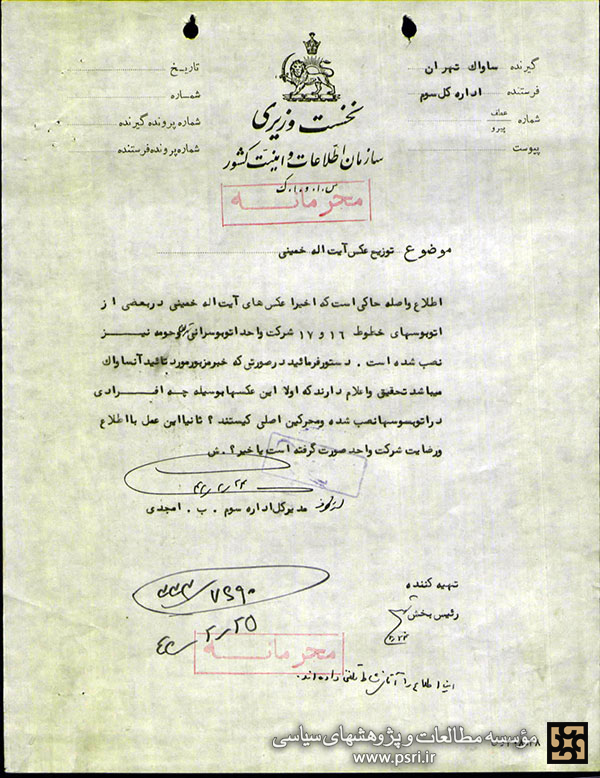 گیرنده ساواک تهران
فرستنده اداره کل سوم
شماره عطف پیرو
پیوست
نخست وزیری
سازمان اطلاعات و امنیت کشور
س.ا.و.ا.ک
تاریخ
شماره
شماره پرونده گیرنده
شماره پرونده فرستنده
محرمانه
موضوع توزیع عکس آیت اله خمینی
اطلاع واصله حاکی است که اخیرا عکس های آیت اله خمینی در بعضی از
اتوبوسهای خطوط ۱۶ و ۱۷ شرکت واحد اتوبوسرانی حومه نیز
نصب شده است . دستور فرمائید در صورتی که خبر مزبور مورد تائید آنساواک
میباشد تحقیق و اعلام دارند که اولا این عکسها بوسیله چه افرادی
در اتوبوسها نصب شده و محرکین اصلی کیستند ؟ ثانیا این عمل با اطلاع
و رضایت شرکت واحد صورت گرفته است یا خیر ؟ . ش
مدیر کل اداره سوم . ب . امجدی
تهیه کننده
رئیس بخش
محرمانه
مؤسسه مطالعات و پژوهشهای سیاسی
www.psri.ir